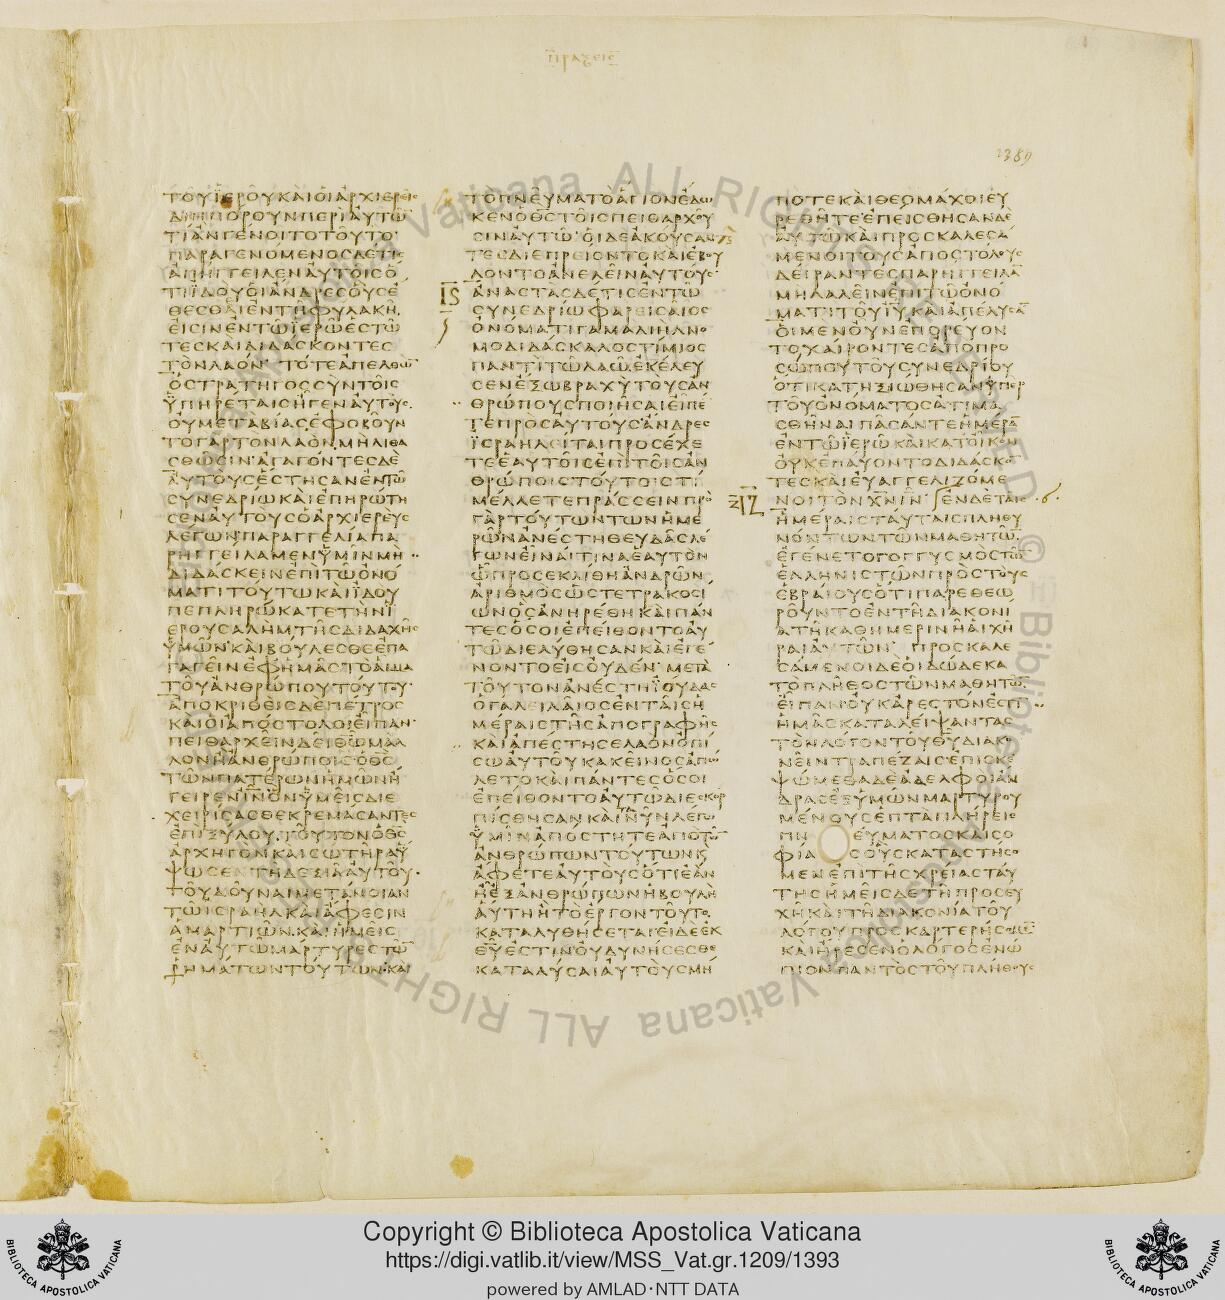 πραξεις
1389
ΤΟΥΪΕΡΟΥΚΑΙΟΙΑΡΧΙΕΡΕΙΣ
ΔΙΗΠΟΡΟΥΝΠΕΡΙΑΥΤΩ̅
ΤΙΑΝΓΕΝΟΙΤΟΤΟΥΤΟ
ΠΑΡΑΓΕΝΟΜΕΝΟΣΔΕΤΙΣ
ΑΠΗΓΓΕΙΛΕΝΑΥΤΟΙΣΟ
ΤΙΪΔΟΥΟΙΑΝΔΡΕΣΟΥΣΕ
ΘΕΣΘΑΙΕΝΤΗΦΥΛΑΚΗ
ΕΙΣΙΝΕΝΤΩΪΕΡΩΕΣΤΩ
ΤΕΣΚΑΙΔΙΔΑΣΚΟΝΤΕΣ
ΤΟΝΛΑΟΝ ΤΟΤΕΑΠΕΛΘΩ̅
ΟΣΤΡΑΤΗΓΟΣΣΥΝΤΟΙΣ
ΫΠΗΡΕΤΑΙΣΗΓΕΝΑΥΤΟΥΣ
ΟΥΜΕΤΑΒΙΑΣΕΦΟΒΟΥΝ
ΤΟΓΑΡΤΟΝΛΑΟΝΜΗΛΙΘΑ
ΣΘΩΣΙΝΑΓΑΓΟΝΤΕΣΔΕ
ΑΥΤΟΥΣΕΣΤΗΣΑΝΕΝΤΩ
ΣΥΝΕΔΡΙΩΚΑΙΕΠΗΡΩΤΗ
ΣΕΝΑΥΤΟΥΣΟΑΡΧΙΕΡΕΥΣ
ΛΕΓΩΝΠΑΡΑΓΓΕΛΙΑΠΑ
ΡΗΓΓΕΙΛΑΜΕΝΫΜΙΝΜΗ
ΔΙΔΑΣΚΕΙΝΕΠΙΤΩΟΝΟ
ΜΑΤΙΤΟΥΤΩΚΑΙΪΔΟΥ
ΠΕΠΛΗΡΩΚΑΤΕΤΗΝΪ
ΕΡΟΥΣΑΛΗΜΤΗΣΔΙΔΑΧΗΣ
ΫΜΩΝΚΑΙΒΟΥΛΕΣΘΕΕΠΑ
ΓΑΓΕΙΝΕΦΗΜΑΣΤΟΑΙΜΑ
ΤΟΥΑΝΘΡΩΠΟΥΤΟΥΤΟΥ
ΑΠΟΚΡΙΘΕΙΣΔΕΠΕΤΡΟΣ
ΚΑΙΟΙΑΠΟΣΤΟΛΟΙΕΙΠΑΝ
ΠΕΙΘΑΡΧΕΙΝΔΕΙΘΩ̅ΜΑΛ
ΛΟΝΗΑΝΘΡΩΠΟΙΣΟΘ̅Σ̅
ΤΩΝΠΑΤΕΡΩΝΗΜΩΝΗ
ΓΕΙΡΕΝΙ̅Ν̅ΟΝΫΜΕΙΣΔΙΕ
ΧΕΙΡΙΣΑΣΘΕΚΡΕΜΑΣΑΝΤΕΣ
ΕΠΙΞΥΛΟΥΤΟΥΤΟΝΟΘ̅Σ̅
ΑΡΧΗΓΟΝΚΑΙΣΩΤΗΡΑΫ
ΨΩΣΕΝΤΗΔΕΞΙΑΑΥΤΟΥ
ΤΟΥΔΟΥΝΑΙΜΕΤΑΝΟΙΑΝ
ΤΩΙΣΡΑΗΛΚΑΙΑΦΕΣΙΝ
ΑΜΑΡΤΙΩΝΚΑΙΗΜΕΙΣ
ΕΝΑΥΤΩΜΑΡΤΥΡΕΣΤΩ̅
ΡΗΜΑΤΩΝΤΟΥΤΩΝΚΑΙ
ΤΟΠΝΕΥΜΑΤΟΑΓΙΟΝΕΔΩ
ΚΕΝΟΘ̅Σ̅ΤΟΙΣΠΕΙΘΑΡΧΟΥ
ΣΙΝΑΥΤΩΟΙΔΕΑΚΟΥΣΑΝ
ΤΕΣΔΙΕΠΡΕΙΟΝΤΟΚΑΙΕΒΟΥ
ΛΟΝΤΟΑΝΕΛΕΙΝΑΥΤΟΥΣ
ΙϚ
ΑΝΑΣΤΑΣΔΕΤΙΣΕΝΤΩ
ΣΥΝΕΔΡΙΩΦΑΡΕΙΣΑΙΟΣ
ΟΝΟΜΑΤΙΓΑΜΑΛΙΗΛΝΟ
ΜΟΔΙΔΑΣΚΑΛΟΣΤΙΜΙΟΣ
ΠΑΝΤΙΤΩΛΑΩΕΚΕΛΕΥ
ΣΕΝΕΞΩΒΡΑΧΥΤΟΥΣΑΝ
ΘΡΩΠΟΥΣΠΟΙΗΣΑΙΕΙΠΕ
ΤΕΠΡΟΣΑΥΤΟΥΣΑΝΔΡΕΣ
ΪΣΡΑΗΛΕΙΤΑΙΠΡΟΣΕΧΕ
ΤΕΕΑΥΤΟΙΣΕΠΙΤΟΙΣΑΝ
ΘΡΩΠΟΙΣΤΟΥΤΟΙΣΤΙ
ΜΕΛΛΕΤΕΠΡΑΣΣΕΙΝΠΡΟ
ΓΑΡΤΟΥΤΩΝΤΩΝΗΜΕ
ΡΩΝΑΝΕΣΤΗΘΕΥΔΑΣΛΕ
ΓΩΝΕΙΝΑΙΤΙΝΑΕΑΥΤΟΝ
ΩΠΡΟΣΕΚΛΙΘΗΑΝΔΡΩΝ
ΑΡΙΘΜΟΣΩΣΤΕΤΡΑΚΟΣΙ
ΩΝΟΣΑΝΗΡΕΘΗΚΑΙΠΑΝ
ΤΕΣΟΣΟΙΕΠΕΙΘΟΝΤΟΑΥ
ΤΩΔΙΕΛΥΘΗΣΑΝΚΑΙΕΓΕ
ΝΟΝΤΟΕΙΣΟΥΔΕΝΜΕΤΑ
ΤΟΥΤΟΝΑΝΕΣΤΗΪΟΥΔΑΣ
ΟΓΑΛΕΙΛΑΙΟΣΕΝΤΑΙΣΗ
ΜΕΡΑΙΣΤΗΣΑΠΟΓΡΑΦΗΣ
ΚΑΙΑΠΕΣΤΗΣΕΛΑΟΝΟΠΙ
ΣΩΑΥΤΟΥΚΑΚΕΙΝΟΣΑΠΩ
ΛΕΤΟΚΑΙΠΑΝΤΕΣΟΣΟΙ
ΕΠΕΙΘΟΝΤΟΑΥΤΩΔΙΕΣΚΟΡ
ΠΙΣΘΗΣΑΝΚΑΙΝΥΝΛΕΓΩ
ΫΜΙΝΑΠΟΣΤΗΤΕΑΠΟΤΩ̅
ΑΝΘΡΩΠΩΝΤΟΥΤΩΝΚ
ΑΦΕΤΕΑΥΤΟΥΣΟΤΙΕΑΝ
ΗΕΞΑΝΘΡΩΠΩΝΗΒΟΥΛΗ
ΑΥΤΗΗΤΟΕΡΓΟΝΤΟΥΤΟ
ΚΑΤΑΛΥΘΗΣΕΤΑΙΕΙΔΕΕΚ
ΘΥ̅ΕΣΤΙΝΟΥΔΥΝΗΣΕΣΘΕ
ΚΑΤΑΛΥΣΑΙΑΥΤΟΥΣΜΗ
ΠΟΤΕΚΑΙΘΕΟΜΑΧΟΙΕΥ
ΡΕΘΗΤΕΕΠΕΙΣΘΗΣΑΝΔΕ
ΑΥΤΩΚΑΙΠΡΟΣΚΑΛΕΣΑ
ΜΕΝΟΙΤΟΥΣΑΠΟΣΤΟΛΟΥΣ
ΔΕΙΡΑΝΤΕΣΠΑΡΗΓΓΕΙΛΑ̅
ΜΗΛΑΛΕΙΝΕΠΙΤΩΟΝΟ
ΜΑΤΙΤΟΥΙ̅Υ̅ΚΑΙΑΠΕΛΥΣΑ̅
ΟΙΜΕΝΟΥΝΕΠΟΡΕΥΟΝ
ΤΟΧΑΙΡΟΝΤΕΣΑΠΟΠΡΟ
ΣΩΠΟΥΤΟΥΣΥΝΕΔΡΙΟΥ
ΟΤΙΚΑΤΗΞΙΩΘΗΣΑΝΫΠΕΡ
ΤΟΥΟΝΟΜΑΤΟΣΑΤΙΜΑ
ΣΘΗΝΑΙΠΑΣΑΝΤΕΗΜΕΡΑ̅
ΕΝΤΩΪΕΡΩΚΑΙΚΑΤΟΙΚΟΝ
ΟΥΚΕΠΑΥΟΝΤΟΔΙΔΑΣΚΟ̅
ΤΕΣΚΑΙΕΥΑΓΓΕΛΙΖΟΜΕ
ΙΖ
ΝΟΙΤΟΝΧ̅Ν̅Ι̅Ν̅ ΕΝΔΕΤΑΙΣ
ΗΜΕΡΑΙΣΤΑΥΤΑΙΣΠΛΗΘΥ
ΝΟΝΤΩΝΤΩΝΜΑΘΗΤΩ̅
ΕΓΕΝΕΤΟΓΟΓΓΥΣΜΟΣΤΩ̅
ΕΛΛΗΝΙΣΤΩΝΠΡΟΣΤΟΥΣ
ΕΒΡΑΙΟΥΣΟΤΙΠΑΡΕΘΕΩ
ΡΟΥΝΤΟΕΝΤΗΔΙΑΚΟΝΙ
ΑΤΗΚΑΘΗΜΕΡΙΝΗΑΙΧΗ
ΡΑΙΑΥΤΩΝ ΠΡΟΣΚΑΛΕ
ΣΑΜΕΝΟΙΔΕΟΙΔΩΔΕΚΑ
ΤΟΠΛΗΘΟΣΤΩΝΜΑΘΗΤΩ̅
ΕΙΠΑΝΟΥΚΑΡΕΣΤΟΝΕΣΤΙ̅
ΗΜΑΣΚΑΤΑΛΕΙΨΑΝΤΑΣ
ΤΟΝΛΟΓΟΝΤΟΥΘ̅Υ̅ΔΙΑΚΟ
ΝΕΙΝΤΡΑΠΕΖΑΙΣΕΠΙΣΚΕ
ΨΩΜΕΘΑΔΕΑΔΕΛΦΟΙΑΝ
ΔΡΑΣΕΞΫΜΩΝΜΑΡΤΥΡΟΥ
ΜΕΝΟΥΣΕΠΤΑΠΛΗΡΕΙΣ
ΠΝ ΕΥΜΑΤΟΣΚΑΙΣΟ
ΦΙΑ ΣΟΥΣΚΑΤΑΣΤΗΣΟ
ΜΕΝΕΠΙΤΗΣΧΡΕΙΑΣΤΑΥ
ΤΗΣΗΜΕΙΣΔΕΤΗΠΡΟΣΕΥ
ΧΗΚΑΙΤΗΔΙΑΚΟΝΙΑΤΟΥ
ΛΟΓΟΥΠΡΟΣΚΑΡΤΕΡΗΣΟΜΕ̅
ΚΑΙΗΡΕΣΕΝΟΛΟΓΟΣΕΝΩ
ΠΙΟΝΠΑΝΤΟΣΤΟΥΠΛΗΘΟΥΣ
Copyright © Biblioteca Apostolica Vaticana
https://digi.vatlib.it/view/MSS_Vat.gr.1209/1393
powered by AMLAD·NTT DATA
BIBLIOTECA APOSTOLICA VATICANA
BIBLIOTECA APOSTOLICA VATICANA